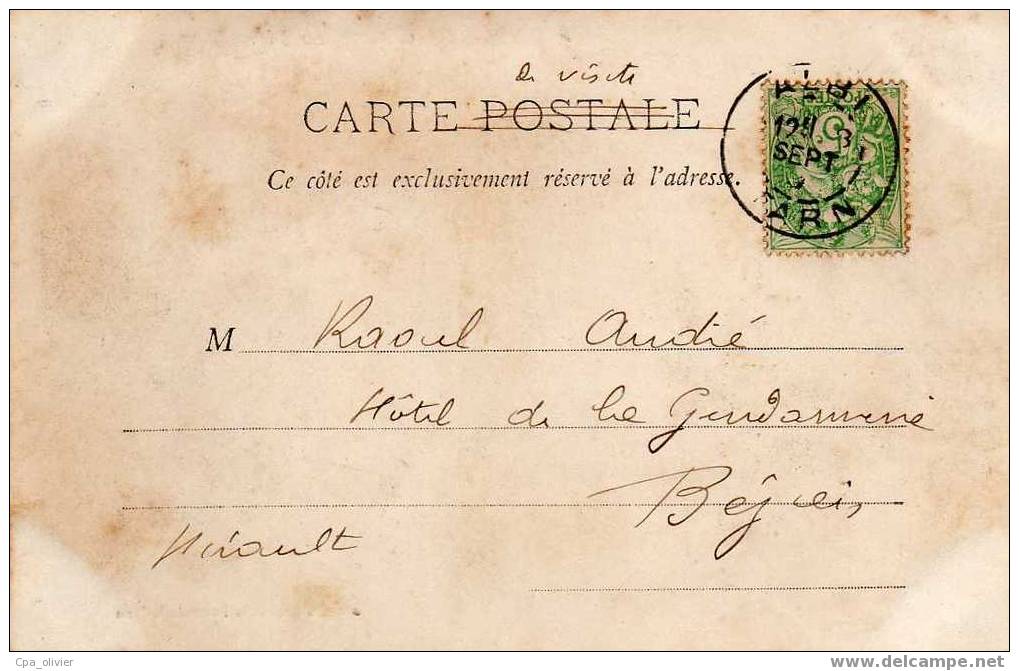 de visite
CARTE POSTALE
Ce côté est exclusivement réservé à l'adresse.
ALBI
SEPT
TARN
M Raoul André
Hôtel de la Gendarmerie
Béziers
Hérault
Cpa_olivier
www.delcampe.net